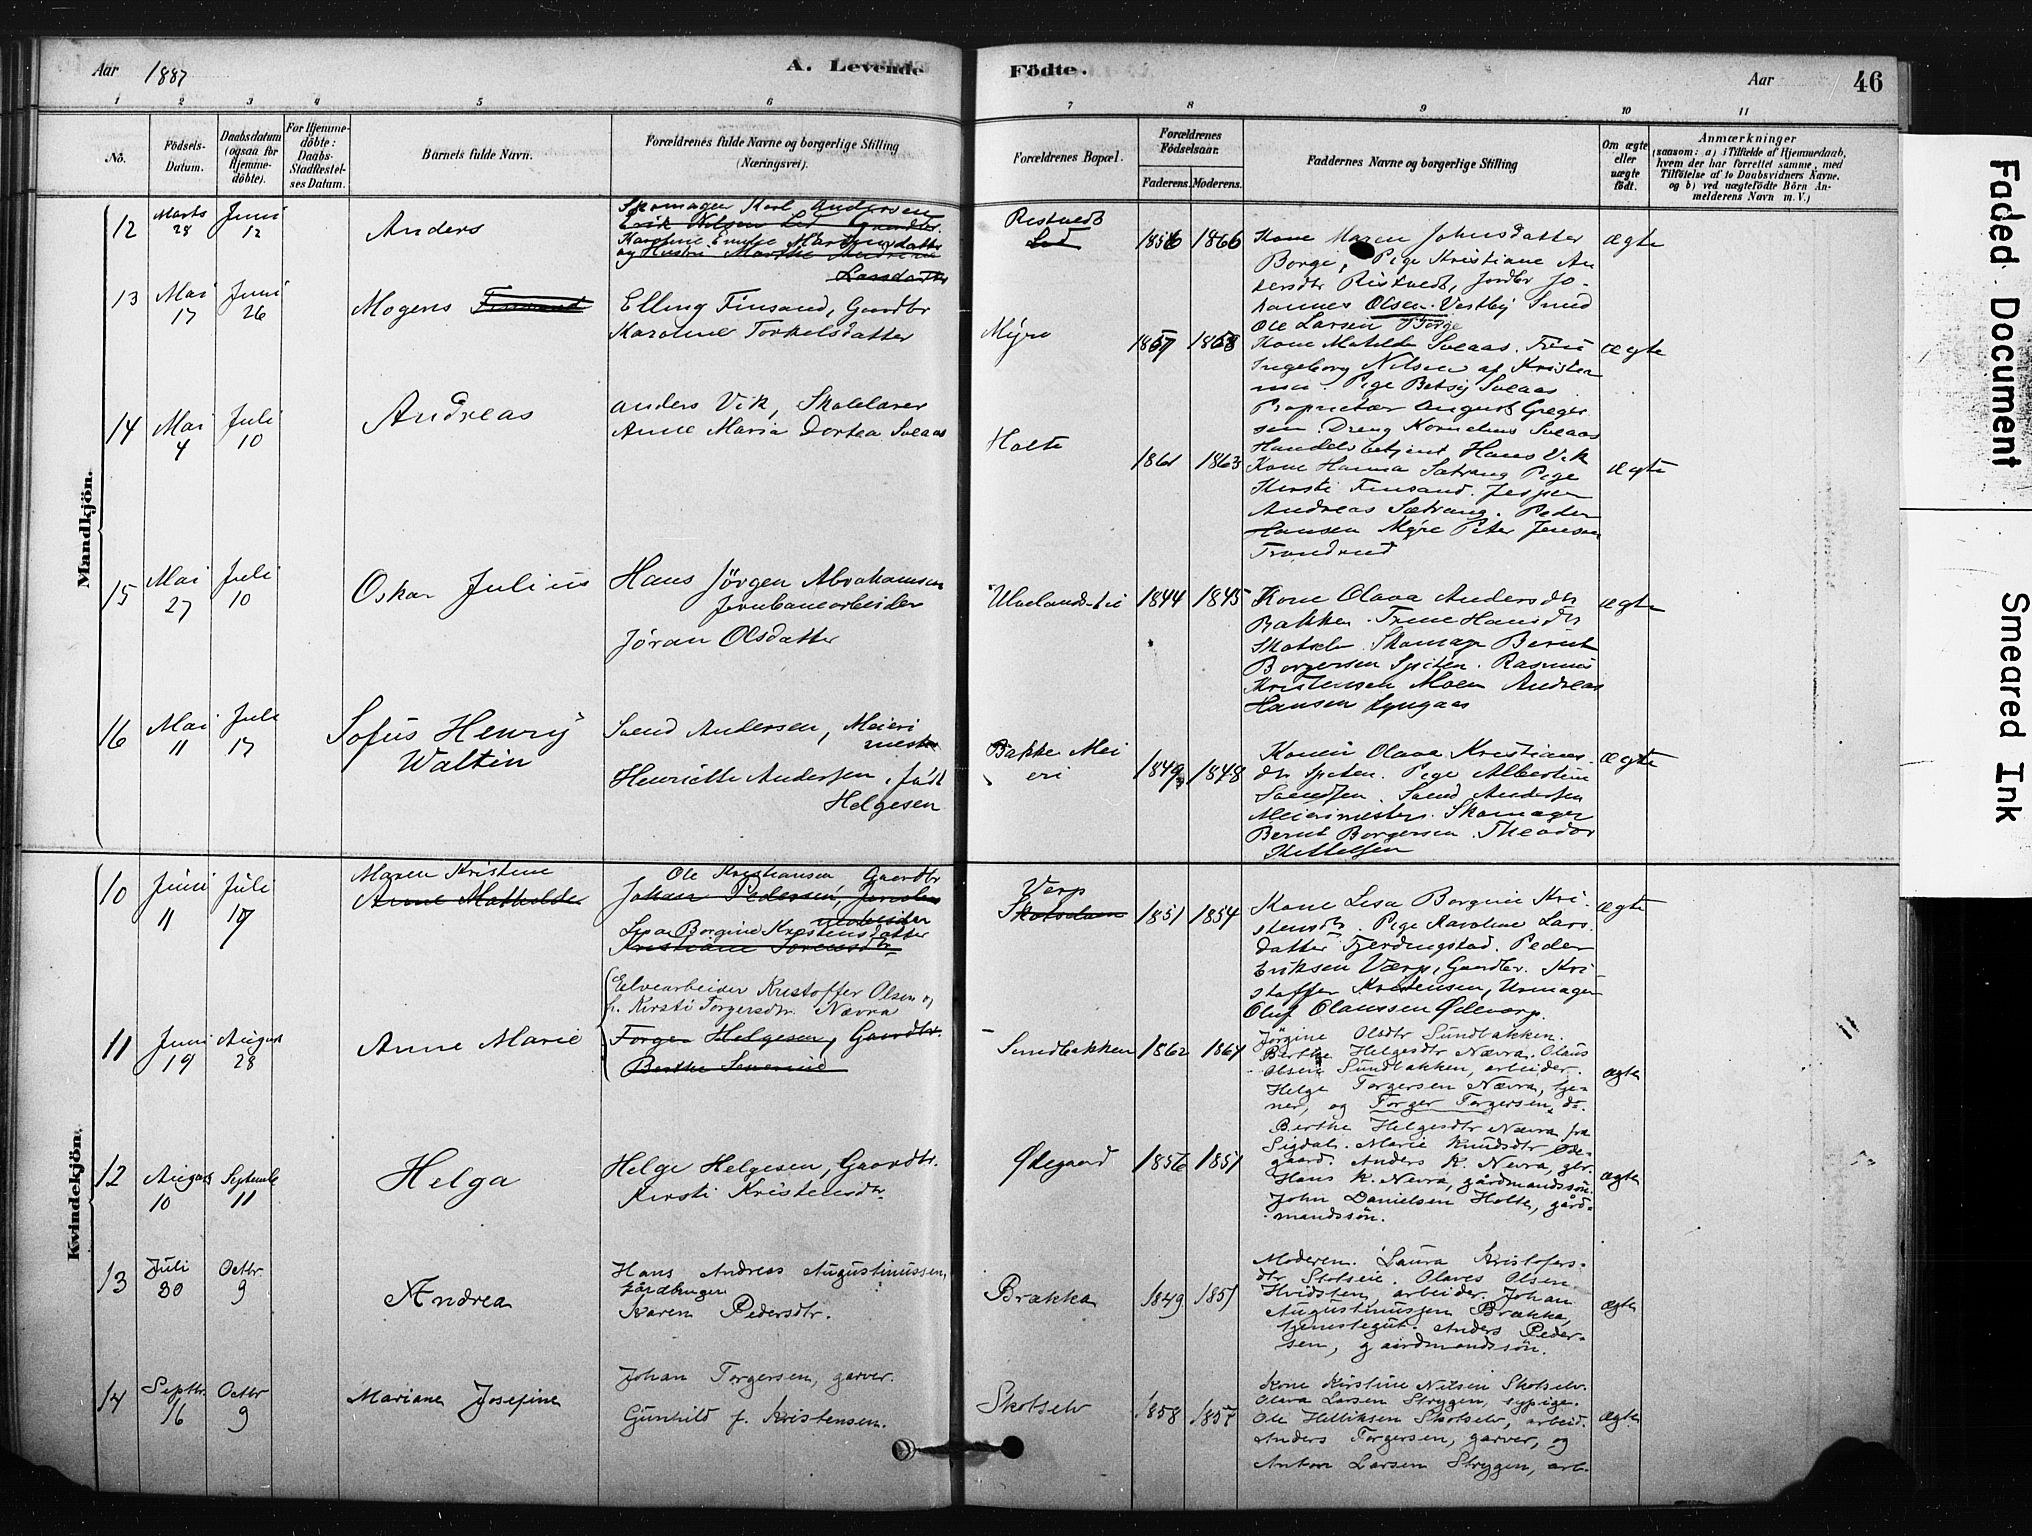 Aar 1887
A. Levende
Födte.
Aar
46
1 2 3 4 5 6 7 8 9 10 11
No.
Födsels-
Datum.
Daabsdatum
(ogsaa for
Hjemme-
döbte).
For Hjemme-
döbte:
Daabs-
Stadfæstel-
ses Datum.
Barnets fulde Navn.
Forældrenes fulde Navne og borgerlige Stilling
(Næringsvei).
Forældrenes Bopæl.
Forældrenes
Födselsaar.
Faderens. Moderens.
Faddernes Navne og borgerlige Stilling
Om ægte
eller
uægte
födt.
Anmærkninger
(saasom: a) i Tilfælde af Hjemmedaab,
hvem der har forrettet samme, med
Tilföielse af to Daabsvidners Navne.
og b) ved uægtefödte Börn An-
melderens Navn m.V.)
Mandkjön.
12
Marts
28
Juni
12
Anders
Skomager Karl Andersen
Karoline Emilie Martinsdatter
og Hustru Marthe Andrine
Larsdatter
Ristvedt
1856 1866
Kone Maren Johnsdatter
Borge, Pige Kristiane An
dersdtr Ristvedt, Jordbr Jo-
hannes Olsen Vestby Smed
Ole Larsen Borge
ægte
13
Mai
17
Juni
26
Mogens Finsand
Elling Finsand, Gaardbr
Karoline Torkelsdatter
Myre
1857 1858
Kone Matilde Sveaas. Fru
Ingeborg Nilsen af Kristia
nia. Pige Betsy Sveaas
Proprietær August Greger
sen. Dreng Kornelius Sveaas
ægte
14
Mai
4
Juli
10
Andreas
Anders Vik, Skolelærer
Anne Maria Dortea Sveaas
Holte
1861 1863
Handelsbetjent Hans Vik
Kone Hanna Sætrang Pige
Kersti Finsand. Jesper
Andreas Sætrang. Peder
Hansen Myre Peter Jensen
Trondrud
ægte
15
Mai
27
Juli
10
Oskar Julius
Hans Jörgen Abrahamsen
Jernbanearbeider
Jöran Olsdatter
Ulvelandseie
1844 1845
Kone Olava Andersdtr
Bakken. Trine Hansdtr
Skotselv. Skomager Bernt
Borgersen Spiten. Rasmus
Kristensen Moen Andreas
Hansen Lyngaas
ægte
16
Mai
11
Juli
17
Sofus Henry
Waltin
Svend Andersen, Meieri
mester
Henriette Andersen, född
Helgesen
Bakke Mei
eri
1849 1848
Konen Olava Kristians
dtr Spiten. Pige Albertine
Svendsen. Svend Andersen
Meierimester. Skomager
Bernt Borgersen. Theodor
Kettelsen
ægte
Kvindekjön.
10
Juni
11
Juli
17
Maren Kristine
Anne Mathilde
Ole Kristiansen Gaardbr
Johan Pedersen, Jernban
earbeider
Lisa Borgine Kristensdatter
Kristiane Sörensdtr
Værp
Skotselven
1851 1854
Kone Lisa Borgine Kri-
stensdtr. Pige Karoline Lars
datter Fjerdingstad. Peder
Eriksen Værp, Gaardbr. Kri
stoffer Kristensen, Urmager
Oluf Olaussen Ödevarp.
ægte
11
Juni
19
August
28
Anne Marie
Elvearbeider Kristoffer Olsen og
h. Kersti Torgersdtr. Nævra
Torger Helgesen, Gaardbr.
Berthe Severine
Sundbakken
1862 1864
Jörgine Olsdtr Sundbakken.
Berthe Helgesdtr Nævra. Olaus
Olsen Sundbakken, arbeider.
Helge Torgersen Nævra, tje-
ner, og Torger Torgersen, do.
ægte
12
August
10
September
11
Helga
Helge Helgesen, Gaardbr.
Kirsti Kristensdtr
Ödegaard
1856 1851
Berthe Helgesdtr Nævra fra
Sigdal. Marie Knudsdtr Öde-
gaard. Anders K. Nevra, gbr.
Hans K. Nevra, gårdmandssön.
John Danielsen Holte, gård-
mandssön.
ægte
13
Juli
30
Octbr.
9
Andrea
Hans Andreas Augustinussen,
Gårdbruger
Karen Pedersdtr.
Brækka
1849 1851
Moderen. Laura Kristofers-
dtr Skotselv. Olaves Olsen
Hvidsten, arbeider. Johan
Augustinussen Brækka,
tjenestegut. Anders Peder-
sen, gaardmandssön.
ægte
14
Septbr.
16
Octbr
9
Mariane Josefine
Johan Torgersen, garver.
Gunhild f. Kristensen.
Skotselv
1858 1857
Kone Kirstine Nilsen Skotselv.
Olava Larsen Strygen, sypige.
Ole Helliksen Skotselv, arbeid.
Anders Torgersen, garver, og
Anton Larsen Strygen, arb.
ægte
Faded Document
Smeared Ink